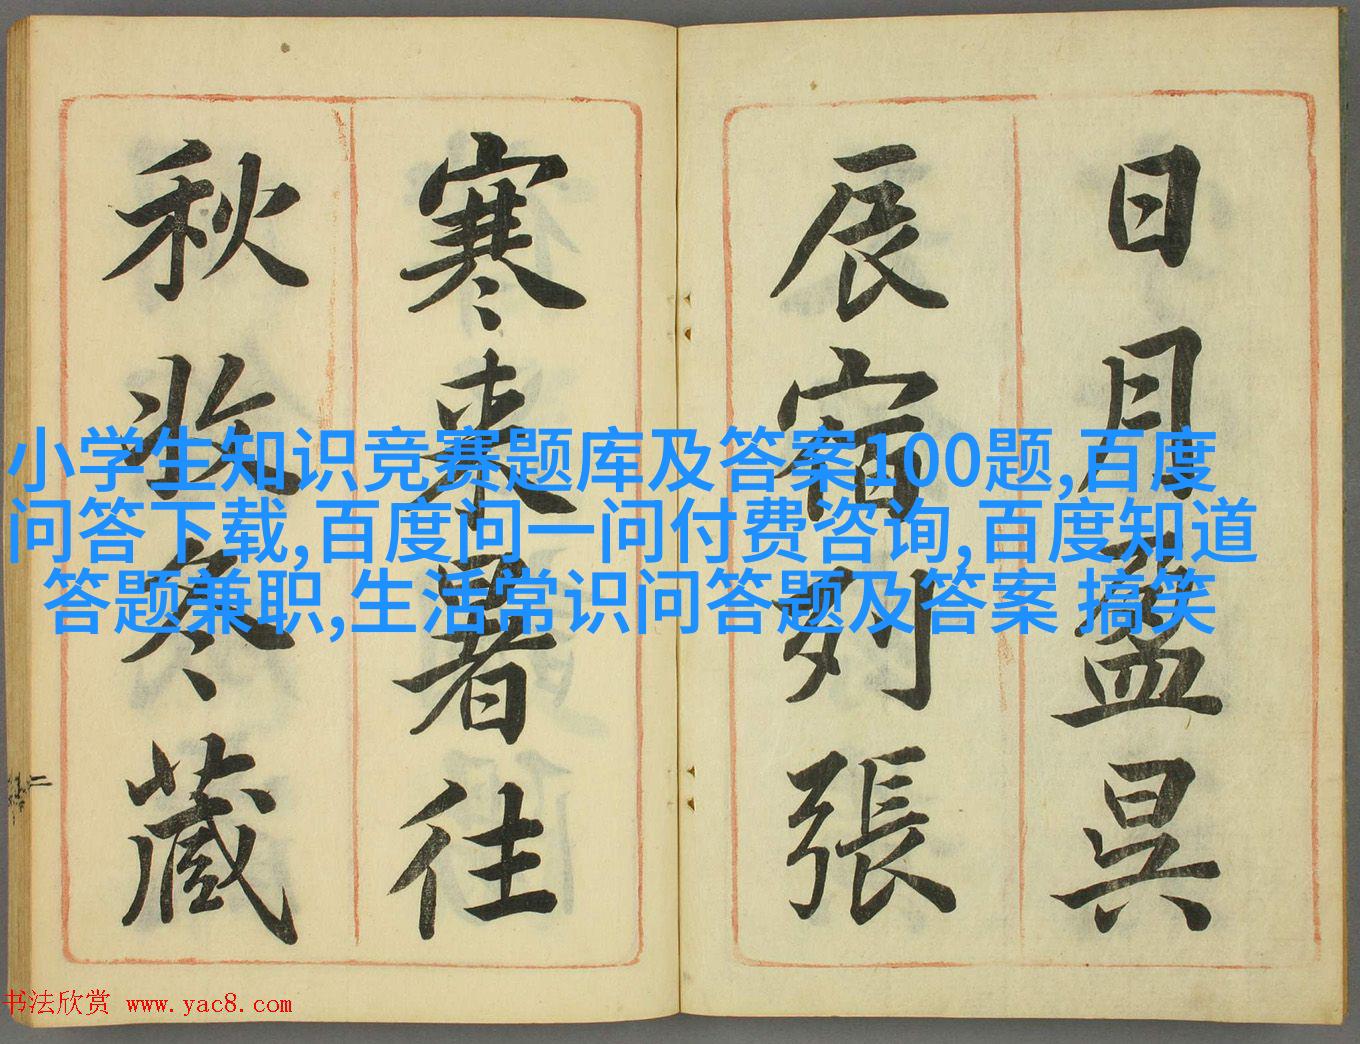 日月盈昃
辰宿列張
寒来暑往
秋收冬藏
小学生知识竞赛题库及答案100题,百度
问答下载,百度问一问付费咨询,百度知道
答题兼职,生活常识问答题及答案 搞笑
书法欣赏 www.yac8.com